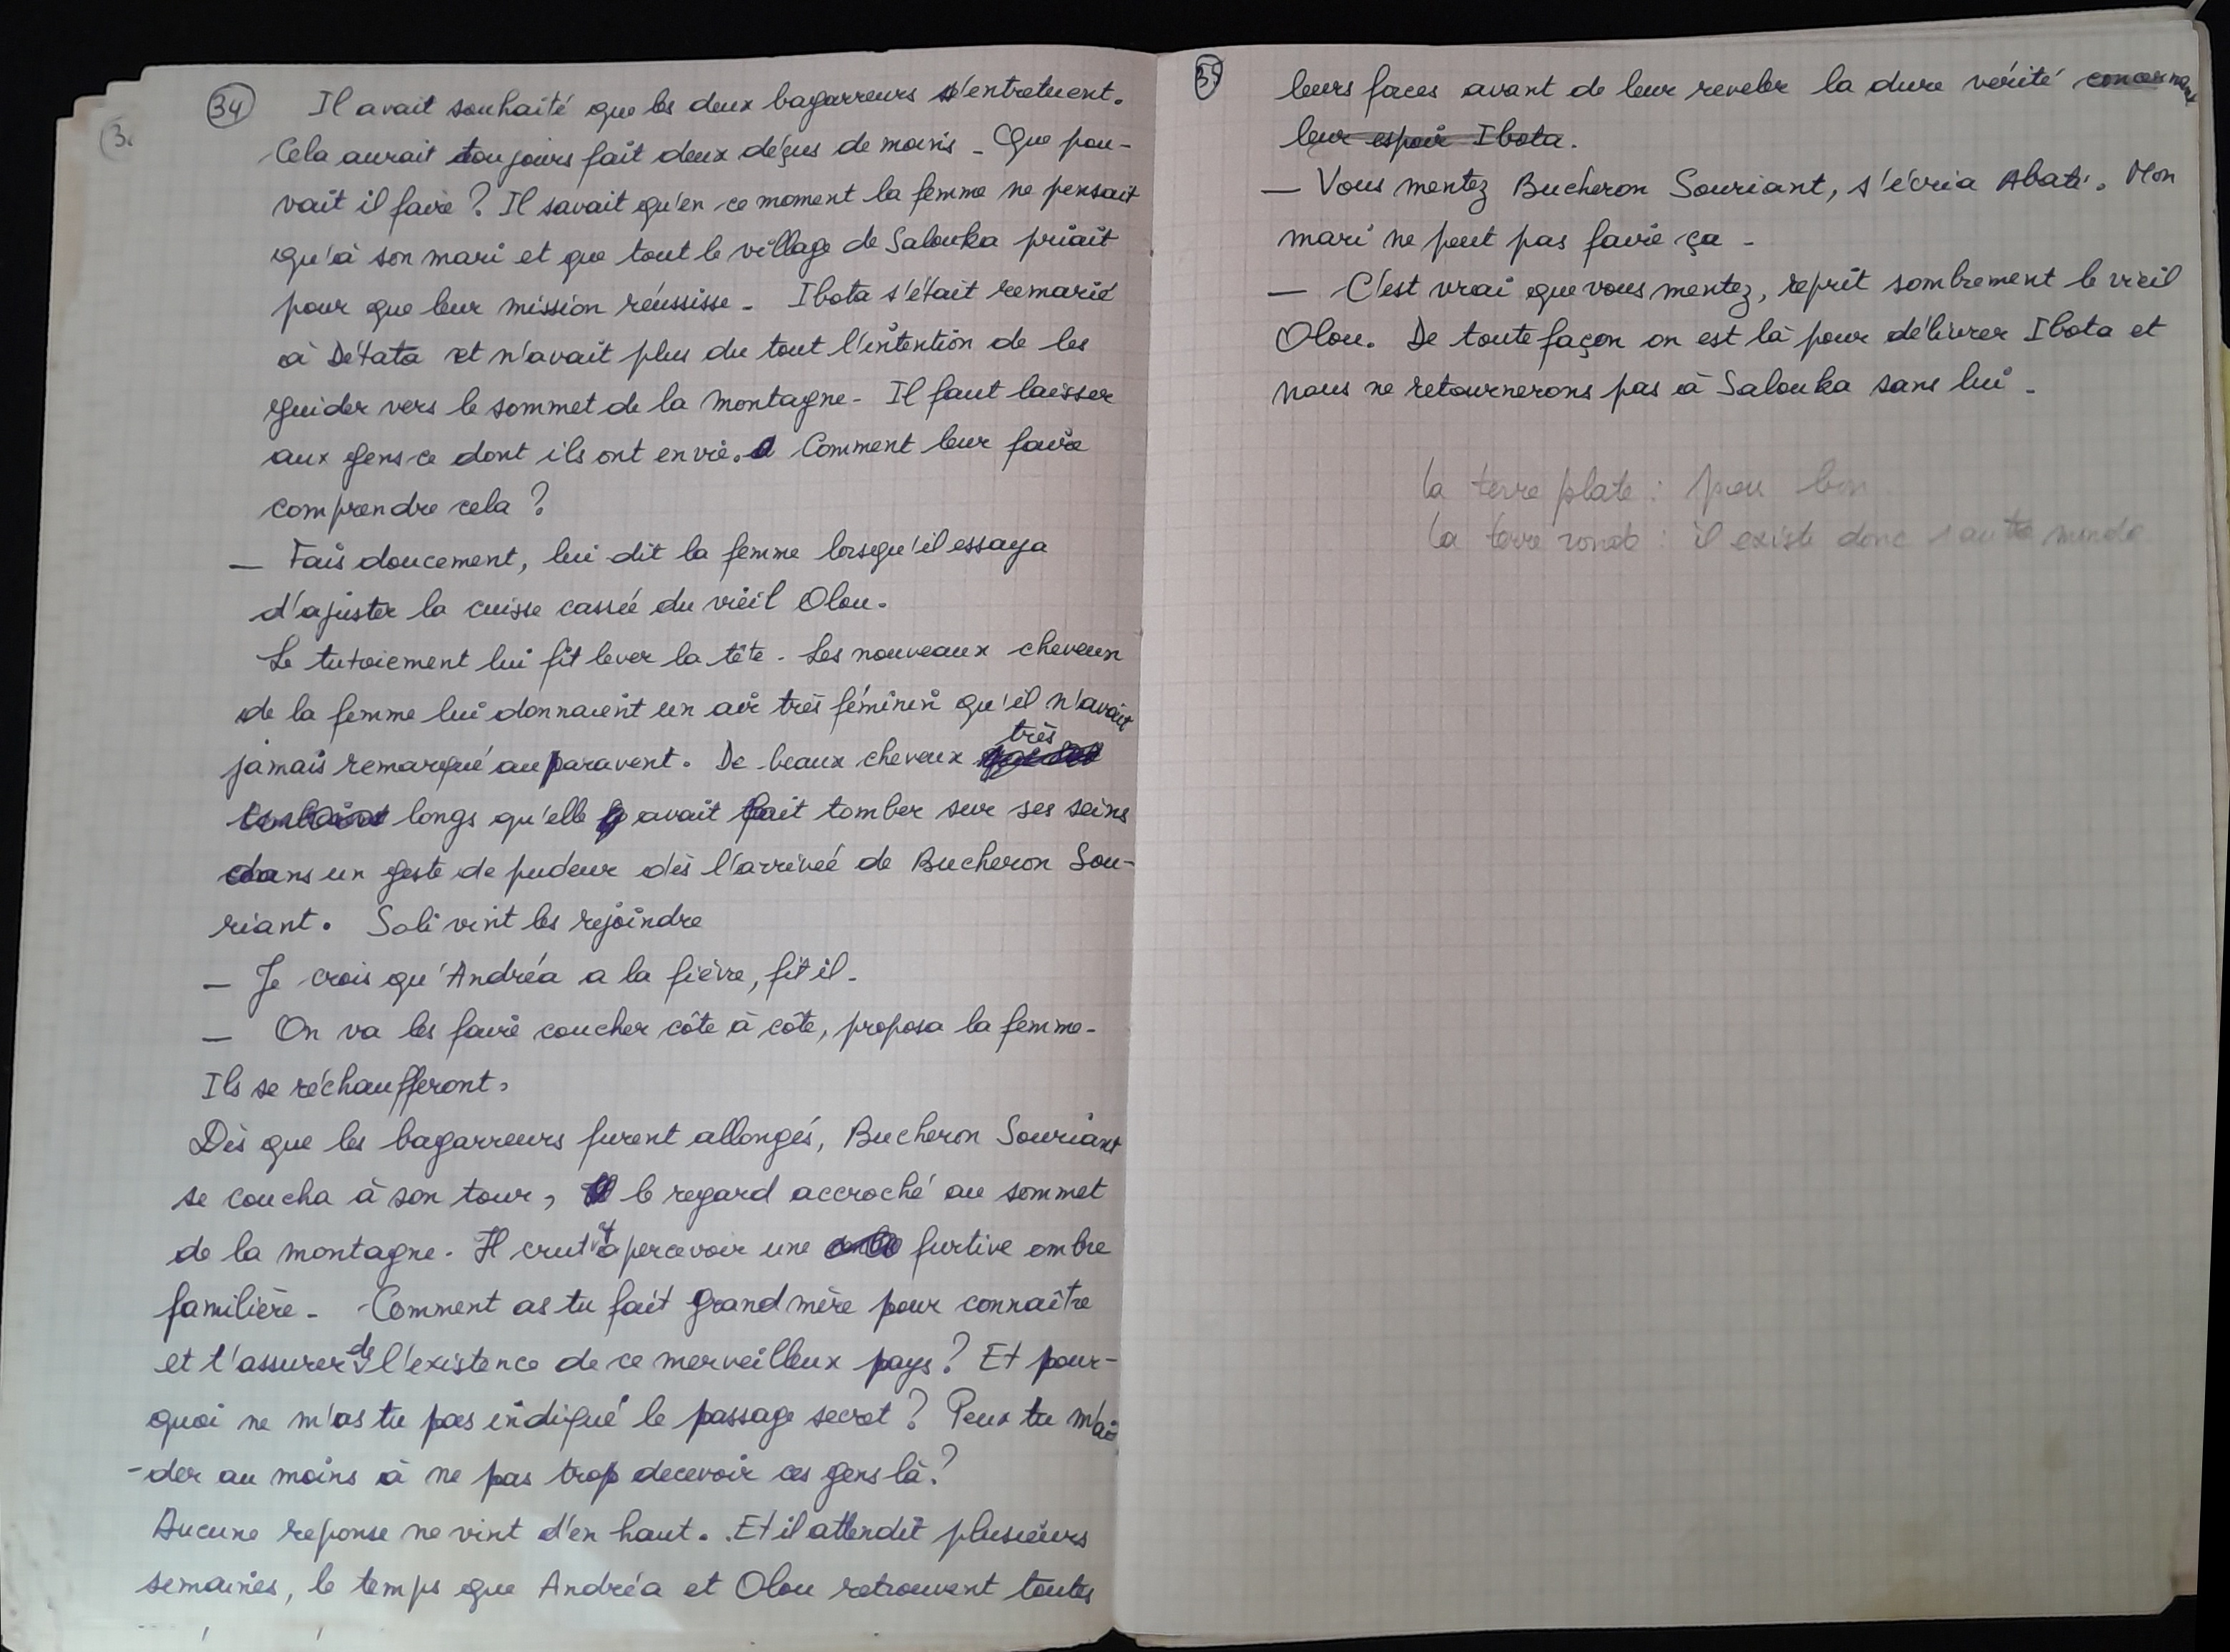 34
Il avait souhaité que les deux bagarreurs s'entretuent.
Cela aurait toujours fait deux déçus de moins - Que pou-
vait il faire ? Il savait qu'en ce moment la femme ne pensait
qu'à son mari et que tout le village de Salouka priait
pour que leur mission réussisse - Ibota s'était remarié
à Détata et n'avait plus du tout l'intention de les
guider vers le sommet de la montagne - Il faut laisser
aux gens ce dont ils ont envie. Comment leur faire
comprendre cela ?
— Fais doucement, lui dit la femme lorsqu'il essaya
d'ajuster la cuisse cassée du vieil Olou.
Le tutoiement lui fit lever la tête - Les nouveaux cheveux
de la femme lui donnaient un air très féminin qu'il n'avait
jamais remarqué auparavent. De beaux cheveux très
longs qu'elle avait fait tomber sur ses seins
dans un geste de pudeur dès l'arrivée de Bucheron Sou-
riant. Soli vint les rejoindre
— Je crois qu'Andréa a la fièvre, fit il -
— On va les faire coucher côte à côte, proposa la femme -
Ils se réchaufferont.
Dès que les bagarreurs furent allongés, Bucheron Souriant
se coucha à son tour, le regard accroché au sommet
de la montagne - Il crut apercevoir une furtive ombre
familière - Comment as tu fait grand mère pour connaître
et t'assurer de l'existence de ce merveilleux pays ? Et pour-
quoi ne m'as tu pas indiqué le passage secret ? Peux tu m'ai
-der au moins à ne pas trop decevoir ces gens là ?
Aucune reponse ne vint d'en haut. Et il attendit plusieurs
semaines, le temps que Andréa et Olou retrouvent toutes
35
leurs faces avant de leur reveler la dure vérité concernant
leur espoir Ibota.
— Vous mentez Bucheron Souriant, s'écria Abati. Mon
mari ne peut pas faire ça -
— C'est vrai que vous mentez, reprit sombrement le vieil
Olou. De toute façon on est là pour délivrer Ibota et
nous ne retournerons pas à Salouka sans lui -
la terre plate : peu bon
la terre ronde : il existe donc 1 autre monde